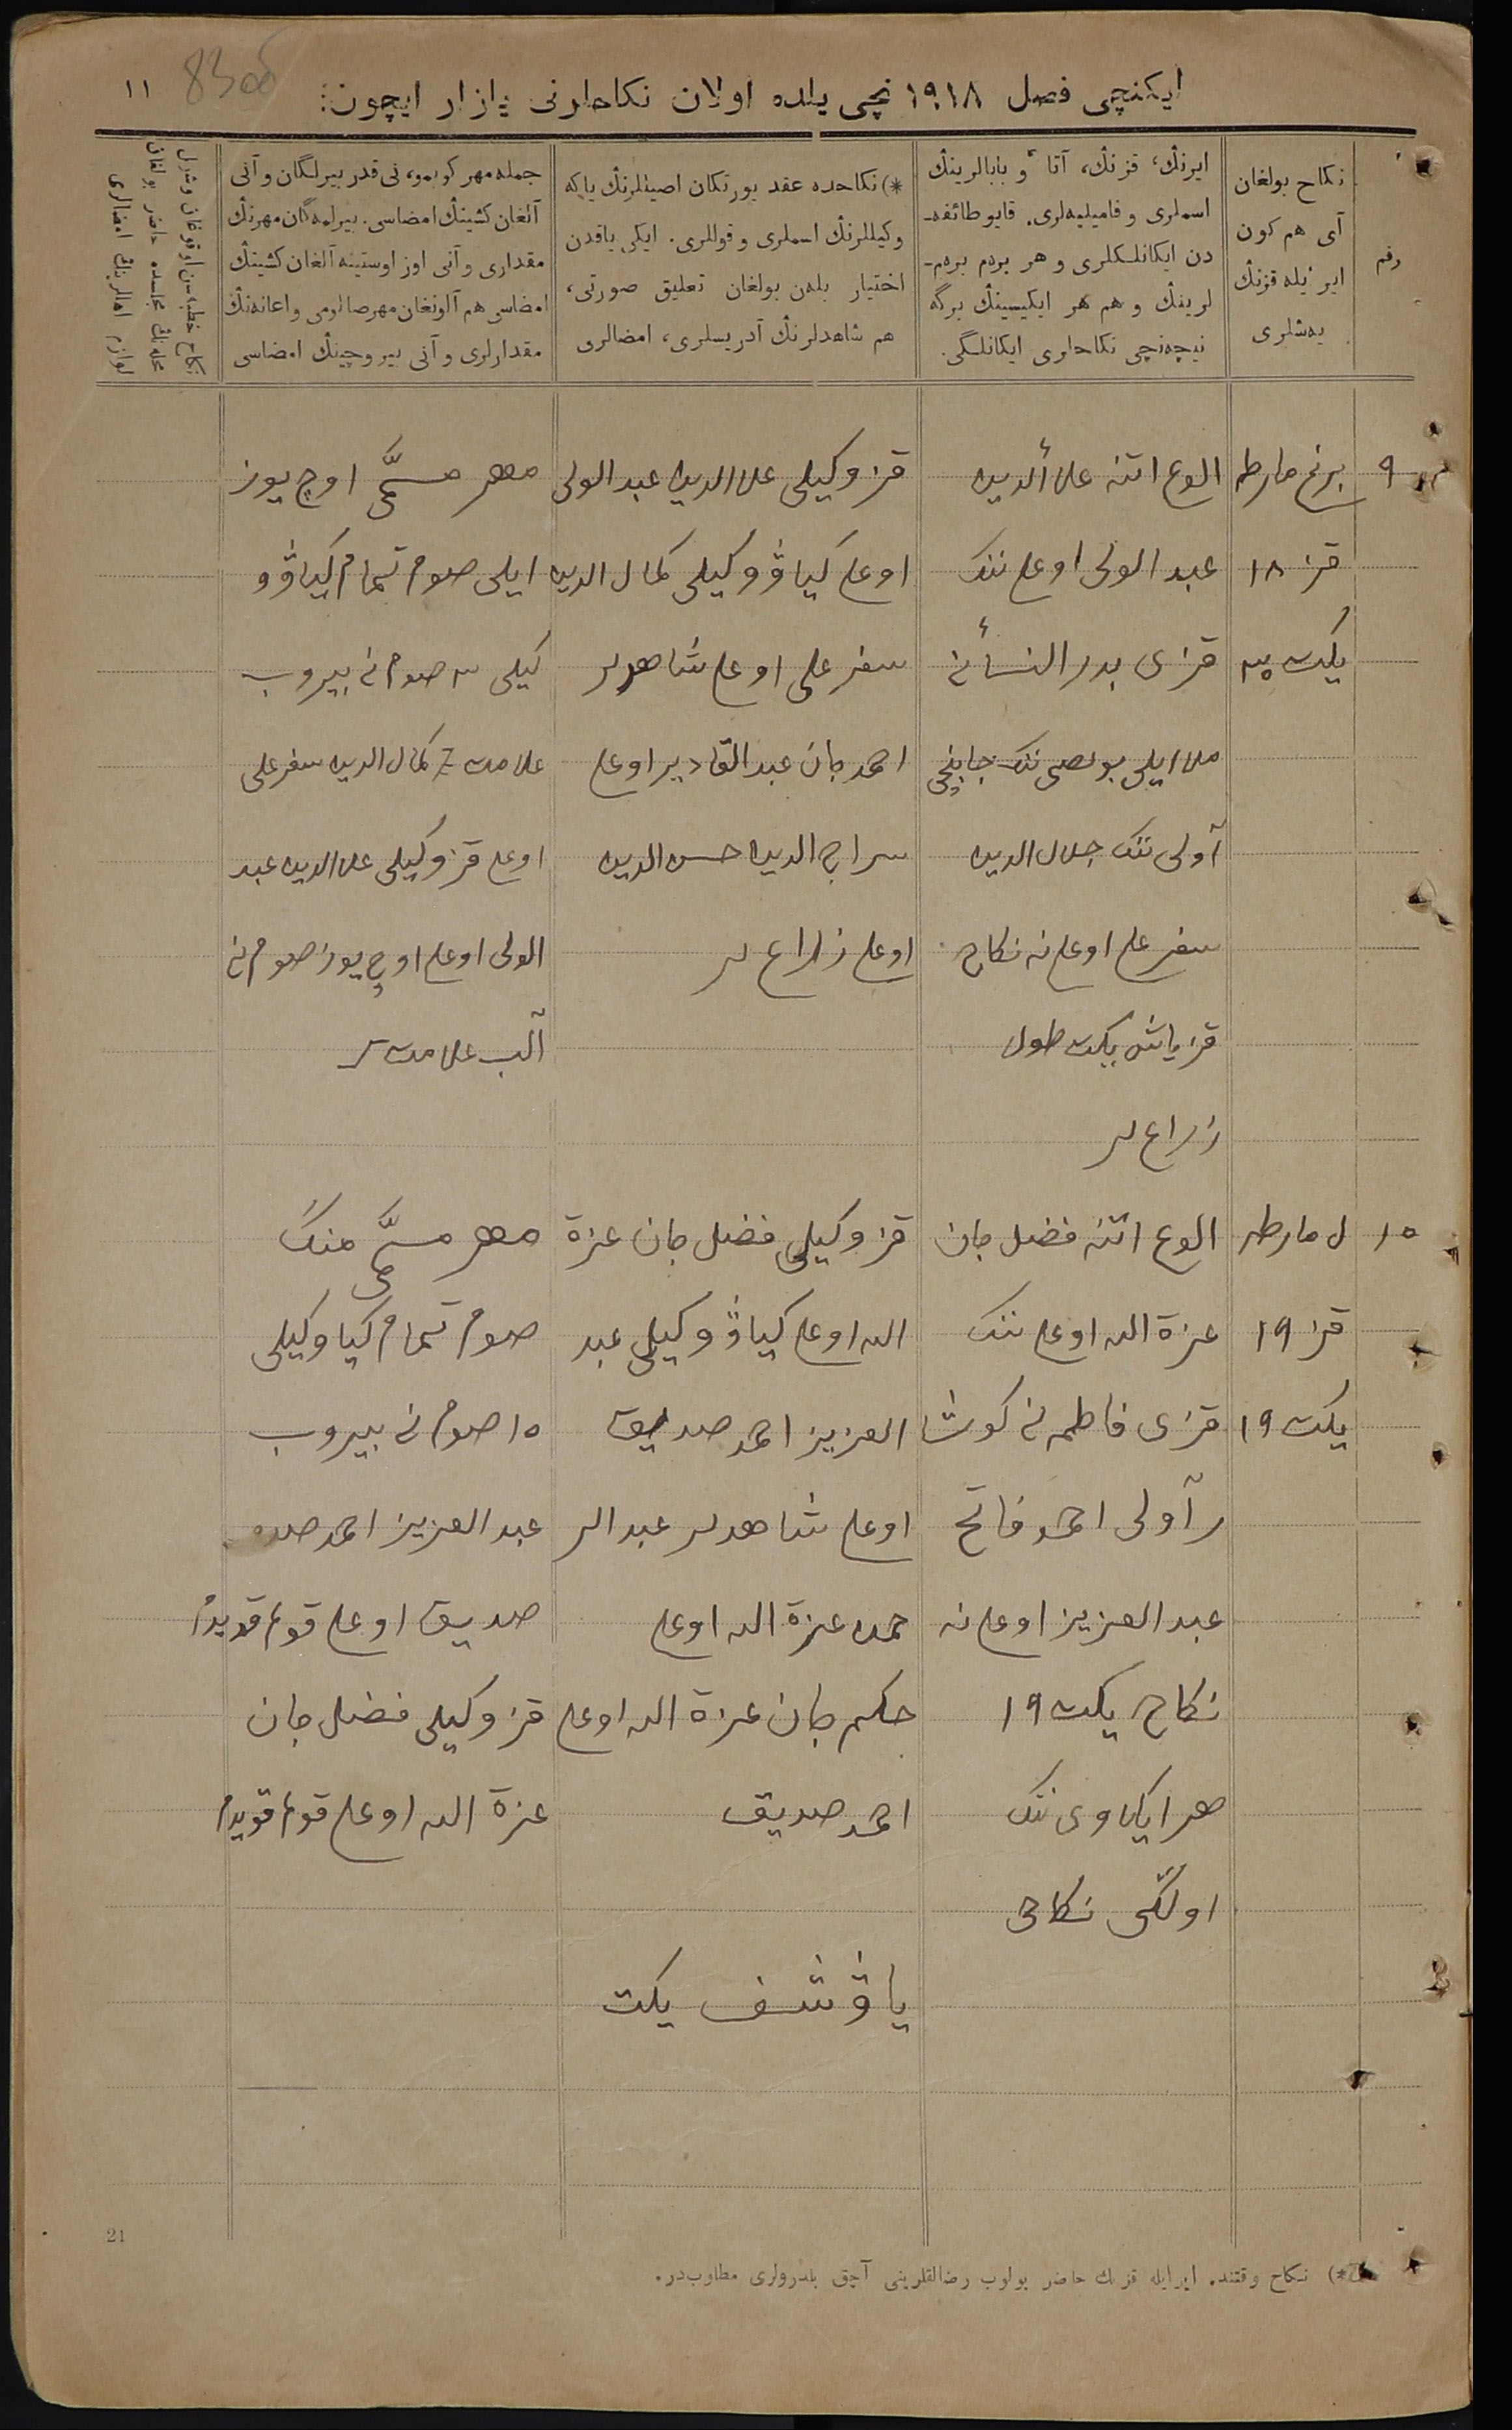 ایكنچی فصل ١٩١٨ نچی یلده اولان نكاحلرنی یازار ایچون:
١١
رقم
نكاح بولغان
آی هم كون
ایر ئیله قزنڭ
یه‌شلری
ایرنڭ، قزنڭ، آتا و بابالرینڭ
اسملری و فامیلیه‌لری. قایو طائفه-
دن ایكانلكلری و هر برەم برەم-
لرینڭ و هم هر ایكیسینڭ برگه
نیچه‌نچی نكاحلری ایكانلگی.
*) نكاحده عقد یورتكان اصیللرنڭ یاكه
وكیللرنڭ اسملری و قوللری. ایكی یاقدن
اختیار بله‌ن بولغان تعلیق صورتی،
هم شاهدلرنڭ آدریسلری، امضالری
جمله مهر كوبمو، نی قدر بیرلگان و آنی
آلغان كشینڭ امضاسی. بیرلمه‌گان مهرنڭ
مقداری و آنی اوز اوستینه آلغان كشینڭ
امضاسی هم آلونغان مهر صالومی و اعانه‌نڭ
مقدارلری و آنی بیروچینڭ امضاسی
٩
برنچ مارط
قز ١٨
یكت ٣٥
الوع اتنه علأالدین
عبد الولی اوعلی ننك
قزی بدر النسأنی
آولی ننك جلال الدین
سفر علی اوعلی نه نكاح
قز یاش یكت طول
زراع لر
قز وكیلی علا الدین عبد الولی
اوعلی كیاۋ وكیلی كمال الدین
سفر علی اوعلی شاهدلر
احمد جان عبد القادیر اوعلی
سراج الدین حسن الدین
اوعلی زراع لر
مهر مسمّى اوچ یوز
ایللی صوم تمام كیاۋ و
كیلی صوم نی بیروب
علامت كمال الدین سفر علی
اوعلی قز وكیلی علا الدین عبد
الولی اوعلی اوچ یوز صوم نی
آلب علامت
١٥
مارط
قز ١٩
یكت ١٩
الوع اتنه فضل جان
عزة الله اوعلی ننك
قزی فاطمه نی كوشا
ر آولی احمد فاتح
عبد العزیز اوعلی نه
نكاح یكت ١٩
هر ایكاوی ننك
اولگی نكاحی
قز وكیلی فضل جان عزة
الله اوعلی كیاۋ وكیلی عبد
العزیز احمد صدیق
اوعلی شاهدلر عبد الر
حمن عزة الله اوعلی
حكیم جان عزة الله اوعلی
احمد صدیق
یاۋشف یكت
مهر مسمّى منك
صوم تمام كیاو وكیلی
١٥ صوم نی بیروب
عبد العزیز احمد
صدیق اوعلی قولم قویدم
قز وكیلی فضل جان
عزة الله اوعلی قولم قویدم
21
*) نكاح وقتنده ایرایله قزنڭ حاضر بولوب رضالقلرینی آچق بلدرولری مطلوب‌در.